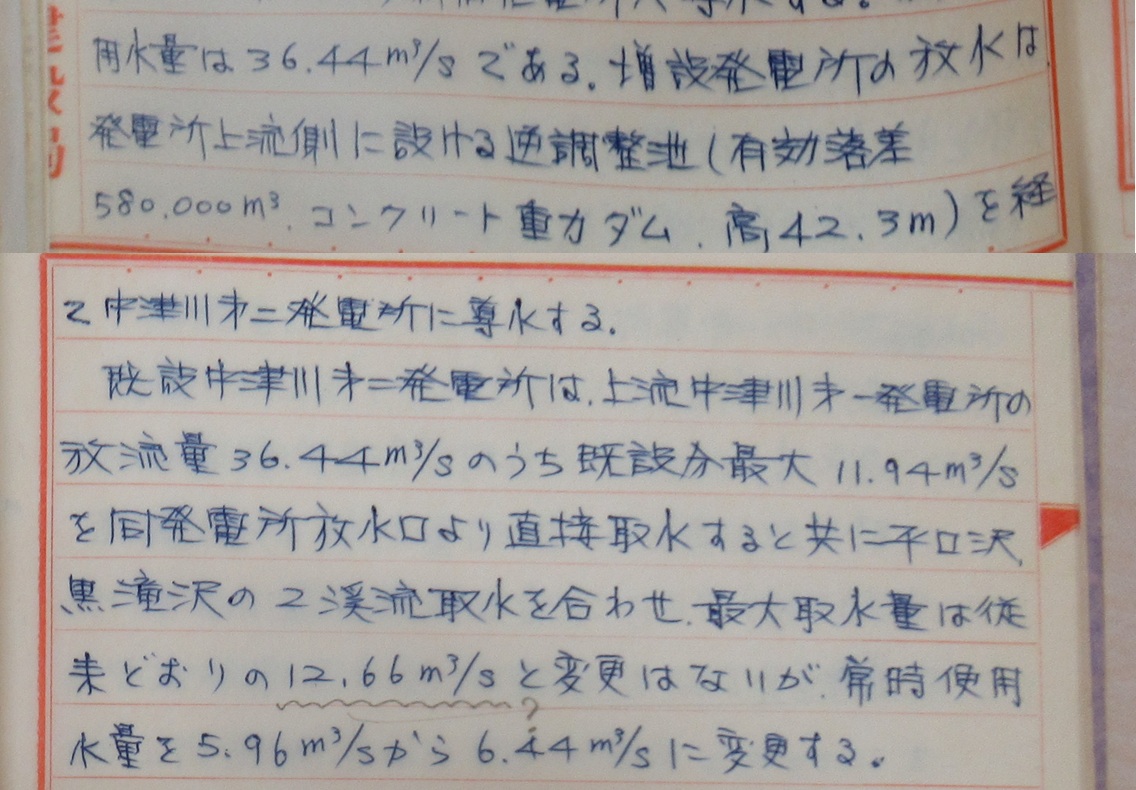 用水量は36.44m³/sである。増設発電所の放水は、
発電所上流側に設ける逆調整池(有効落差
580,000m³、コンクリート重力ダム、高42.3m)を経
て中津川才二発電所に導水する。
既設中津川才二発電所は、上流中津川才一発電所の
放流量36.44m³/sのうち既設分最大11.94m³/s
を同発電所放水口より直接取水すると共に平口沢、
黒滝沢の2渓流取水を合わせ、最大取水量は従
来どおりの12.66m³/sと変更はないが、常時使用
?
水量を5.96m³/sから6.44m³/sに変更する。